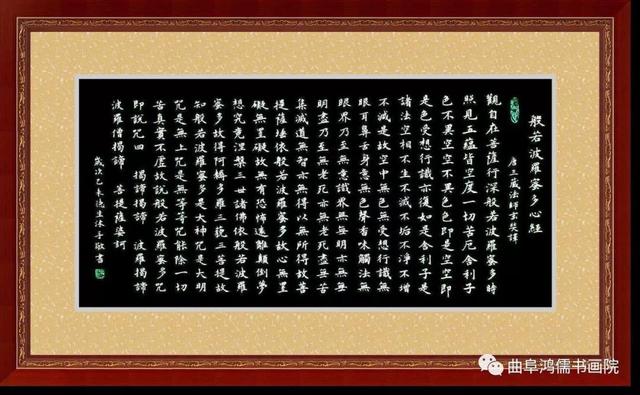 般若波羅蜜多心經
唐三藏法師玄奘譯
觀自在菩薩行深般若波羅蜜多時
照見五蘊皆空度一切苦厄舍利子
色不異空空不異色色即是空空即
是色受想行識亦復如是舍利子是
諸法空相不生不滅不垢不淨不增
不減是故空中無色無受想行識無
眼耳鼻舌身意無色聲香味觸法無
眼界乃至無意識界無無明亦無無
明盡乃至無老死亦無老死盡無苦
集滅道無智亦無得以無所得故菩
提薩埵依般若波羅蜜多故心無罣
礙無罣礙故無有恐怖遠離顛倒夢
想究竟涅槃三世諸佛依般若波羅
蜜多故得阿耨多羅三藐三菩提故
知般若波羅蜜多是大神咒是大明
咒是無上咒是無等等咒能除一切
苦真實不虛故說般若波羅蜜多咒
即說咒曰 揭諦揭諦 波羅揭諦
波羅僧揭諦 菩提薩婆訶
歲次乙未 敬書
曲阜鸿儒书画院